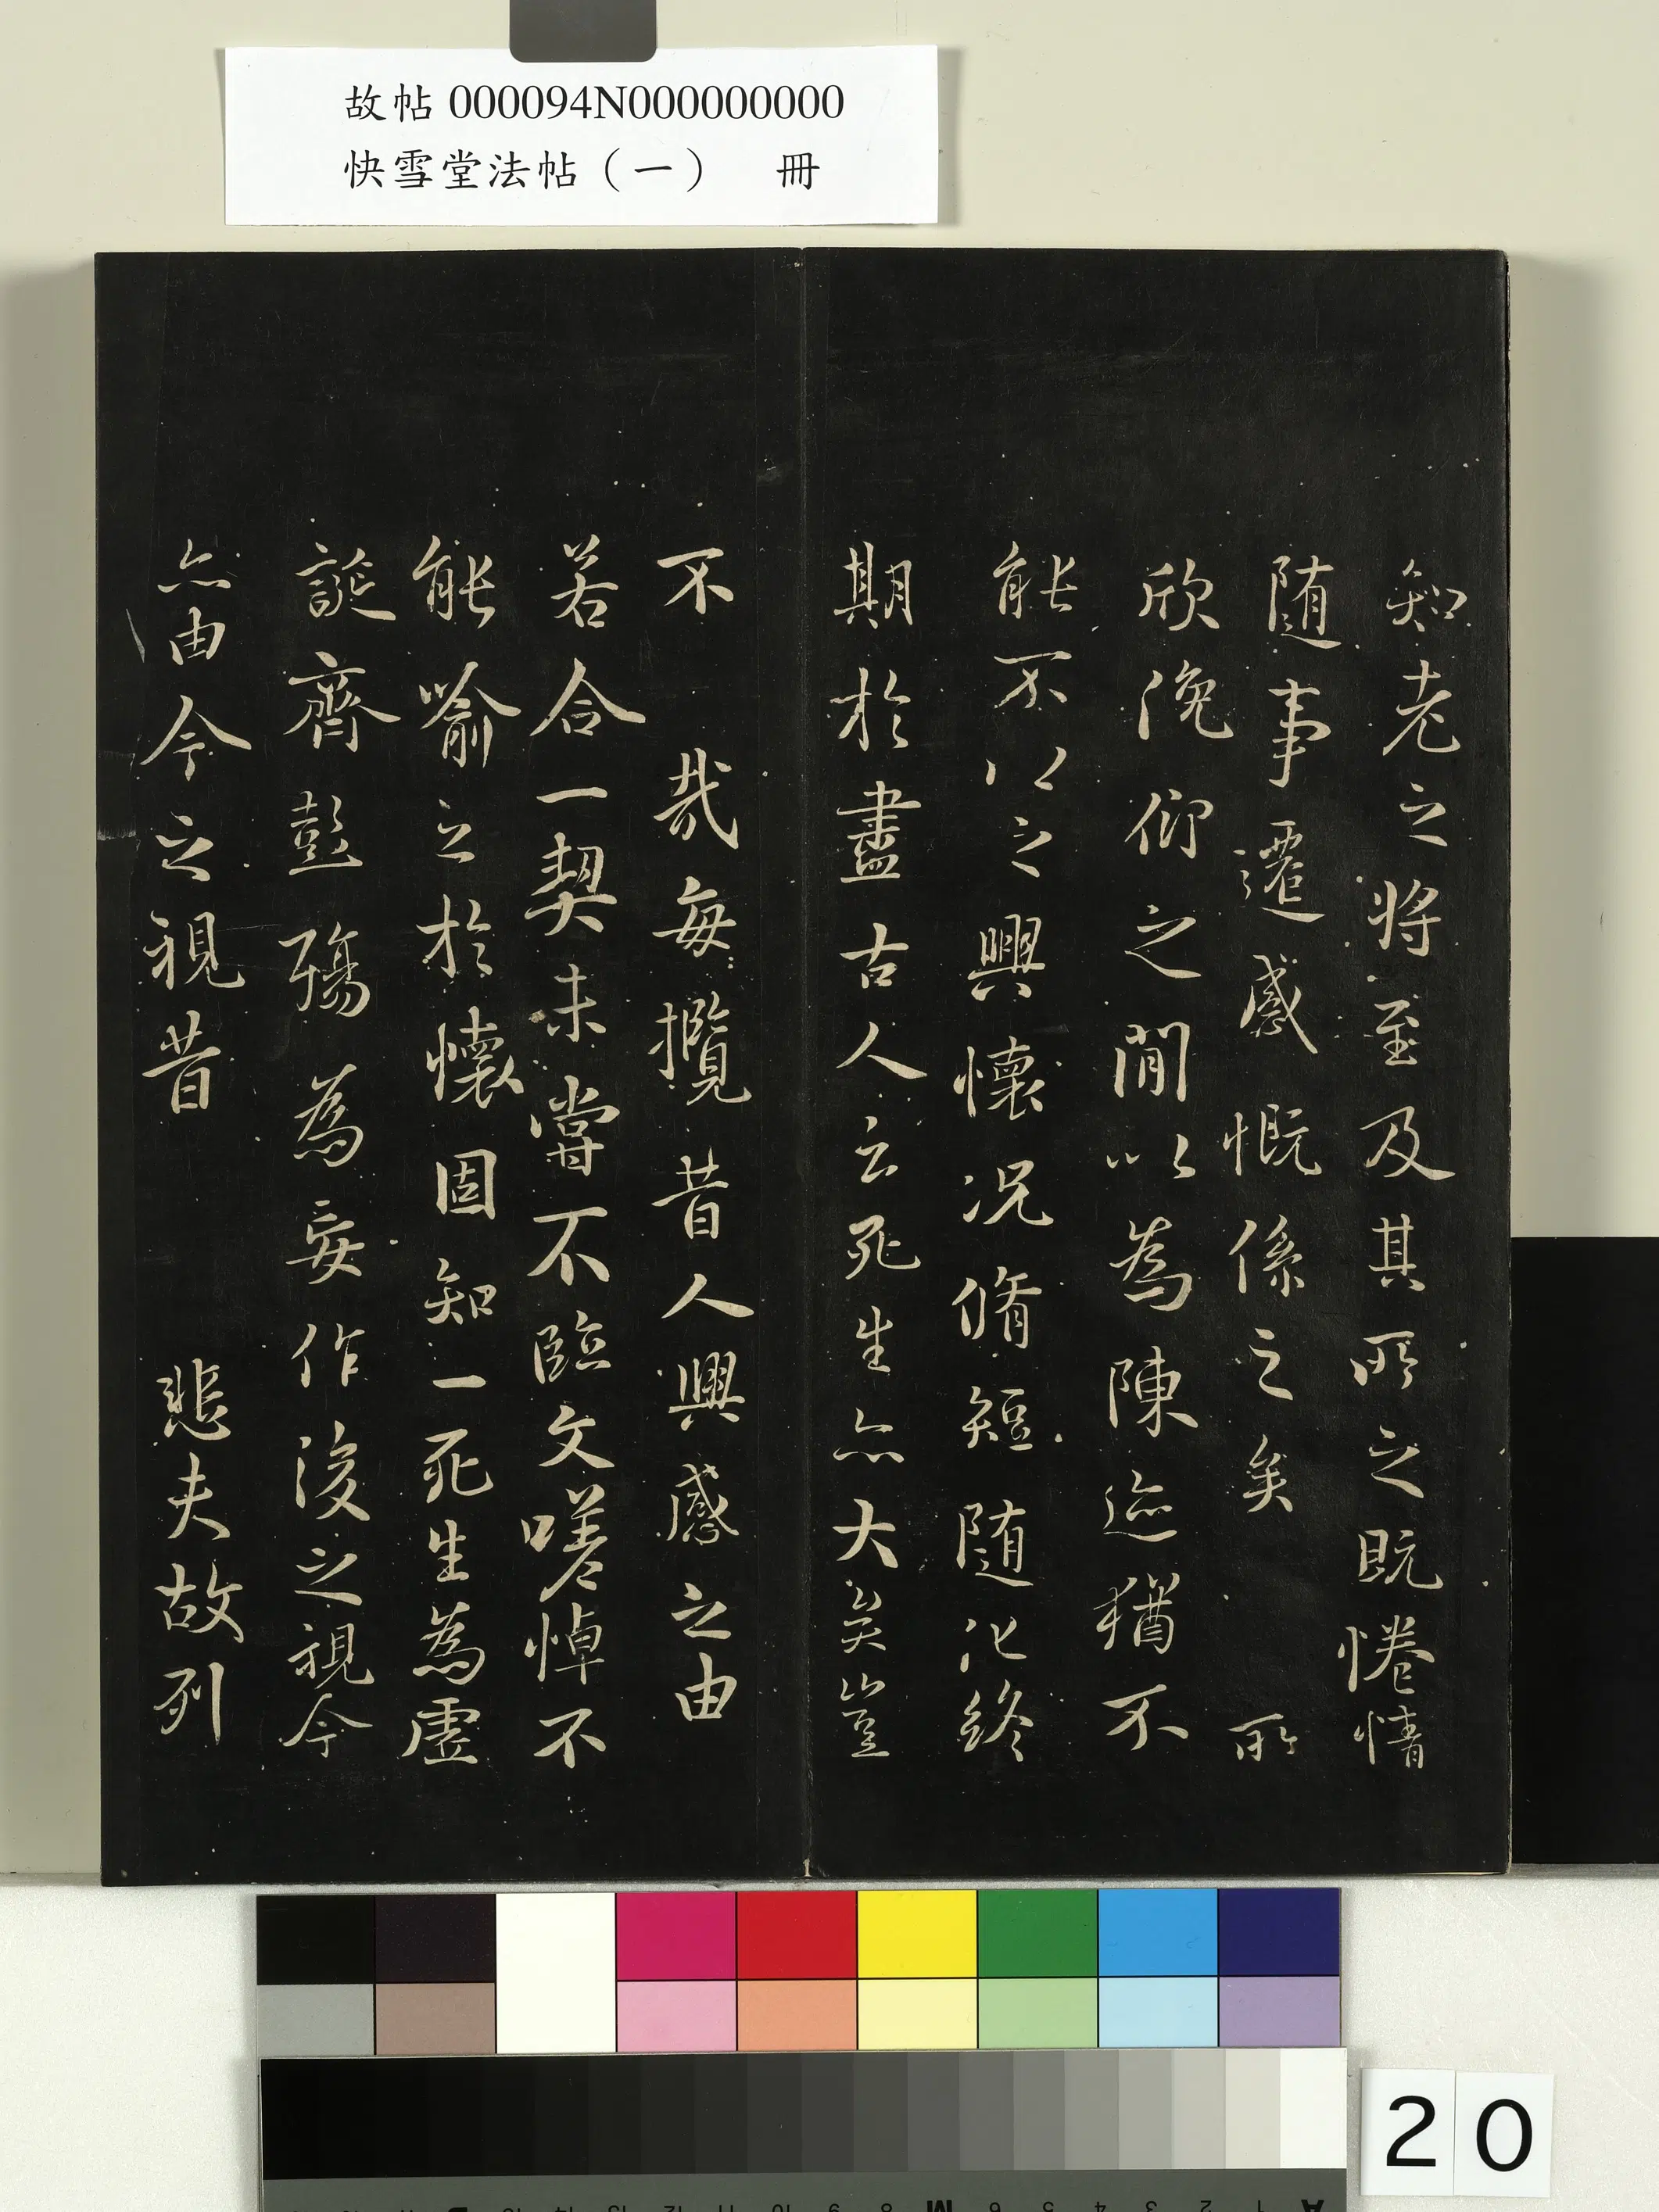 故帖000094N000000000
快雪堂法帖（一） 冊
知老之将至及其所之既惓情
随事遷感慨係之矣 所
欣俛仰之閒以為陳迹猶不
能不以之興懷况脩短随化終
期於盡古人云死生亦大矣豈
不 哉每攬昔人興感之由
若合一契未嘗不臨文嗟悼不
能喻之於懷固知一死生為虛
誕齊彭殤為妄作後之視今
亦由今之視昔 悲夫故列
20